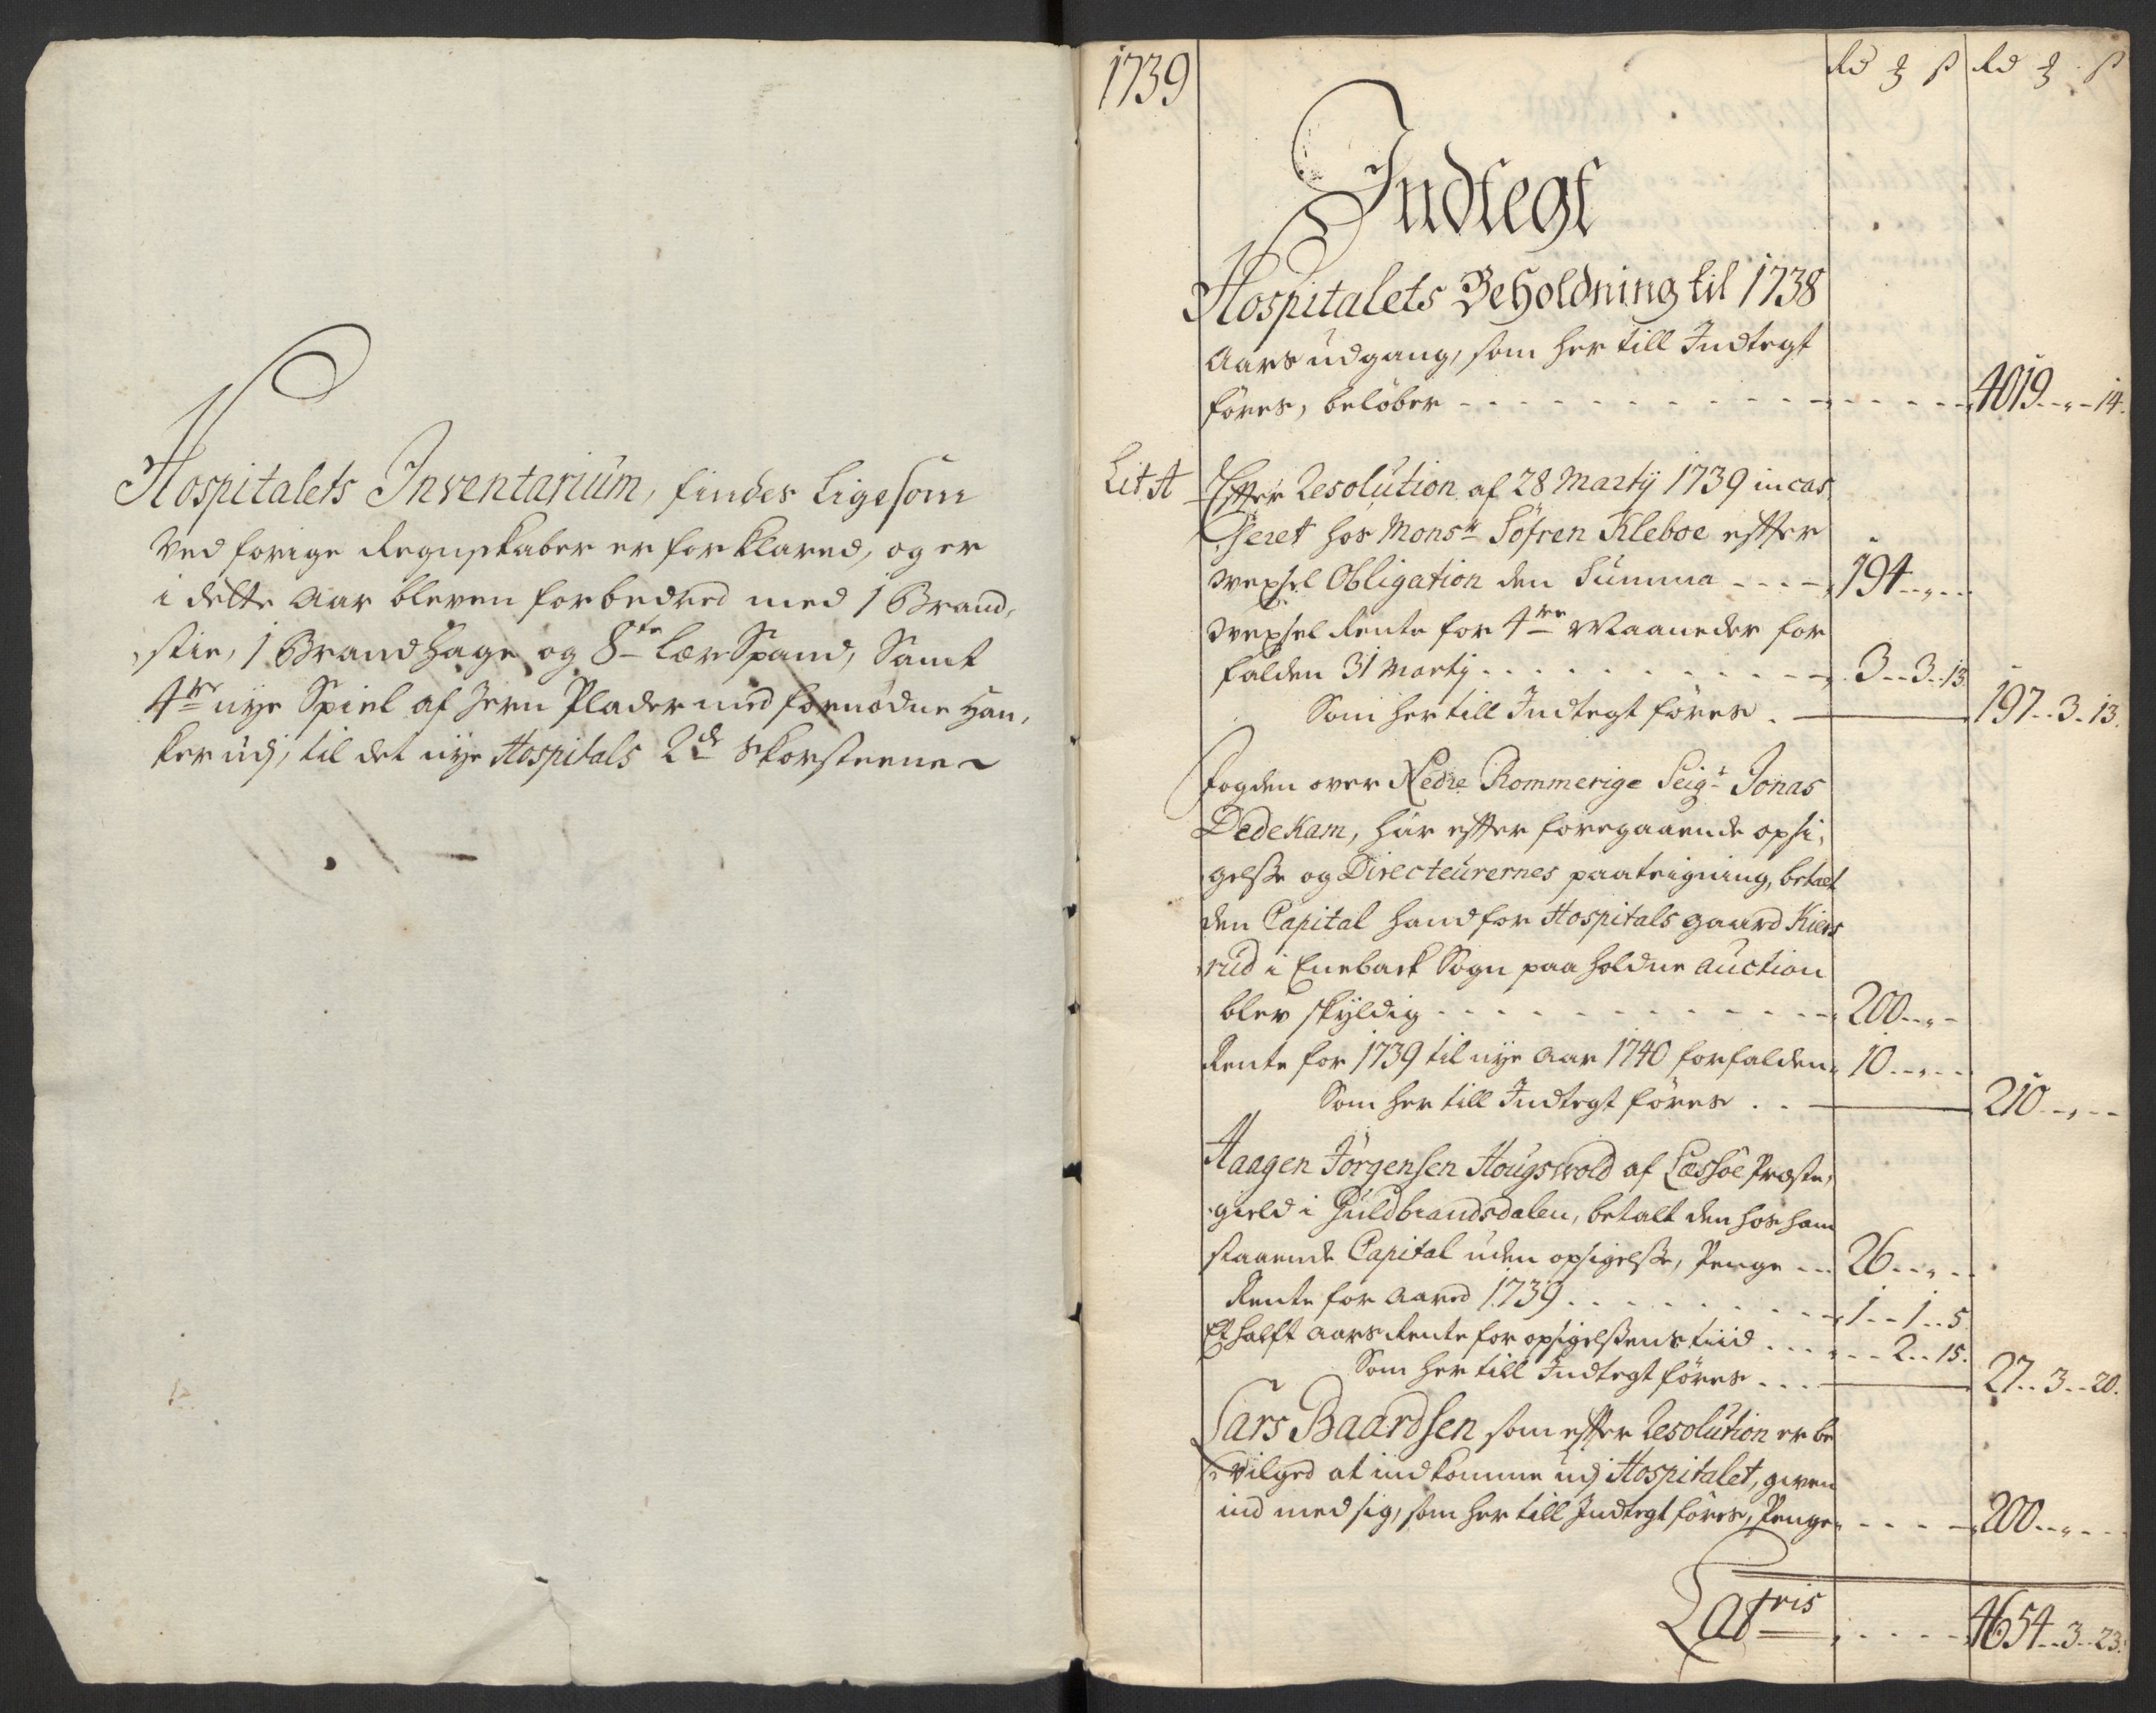 Hospitalets Inventarium, findes Ligesom
ved forige Regnskaber er forklared, og er
i dette Aar bleven forbedred med 1 Brand,
stie, 1 Brandhage og 8te Lær Spand, Samt
4re nye Spiel af Jern Plader med fornødne Han,
ker udj, til det nye Hospitals 2de Skorsteene
1739
Rd ꝫ ß Rd ꝫ ß
Indtegt
Hospitalets Beholdning til 1738
Aars udgang, som her till Indtegt
føres, beløber - - - 4019 - „ - 14.
Lit. A
Effter Resolution af 28 Martij 1739 incas,
seret hos Monsr Söfren Kleboe effter
Vexsel Obligation den Summa - - - 194 - „ -
Vexsel Rente for 4re Maaneder for
falden 31 Martij - - - 3 - 3 - 13.
Som her till Indtegt føres . 197 - 3 - 13.
Fogden over Nedre Rommerige Seigr Jonas
Dedekam, har effter foregaaende opsi,
gelsse og Directeurernes paateigning, betalt
den Capital hand for Hospitals gaard Kiers
rud i Enebach Sogn paa holdne auction
blev skyldig - - - 200 - „ -
Rente for 1739 til nye Aar 1740 forfalden 10 - „ -
Som her till Indtegt føres . . 210 - „ -
Haagen Jörgensen Hougsvold af Lessöe Præste,
gield i Guldbrandsdalen, betalt den hos ham
staaende Capital uden opsigelsse, Penge - - 26 - „ -
Rente for Aared 1739 - - - 1 - 1 - 5
Et halft Aars Rente for opsigelssens tiid - - - 2 - 15.
Som her till Indtegt føres - - - 27 - 3 - 20.
Lars Baardsen som effter Resolution er be
vilged at indkomme udj Hospitalet, given
ind med sig, som her till Indtegt føres, Penge - - - 200 - „ -
Latris - - - 4654 - 3 - 23.